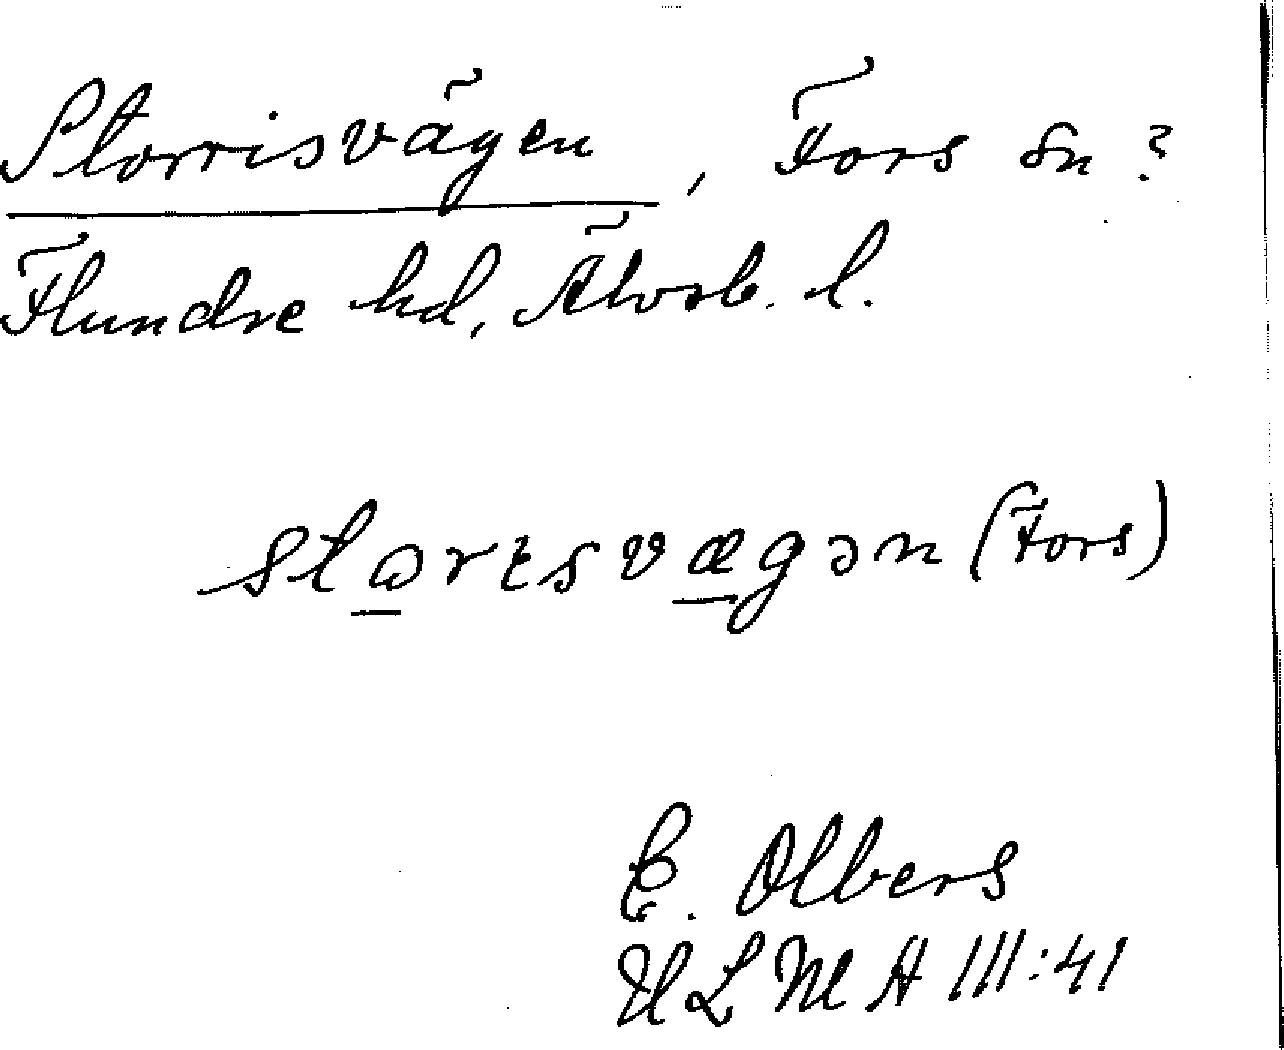 Storrisvägen, Fors sn?
Flundre hd, Älvsb. l.
størɛsvægən (Fors)
E. Olbers
ULMA III:41